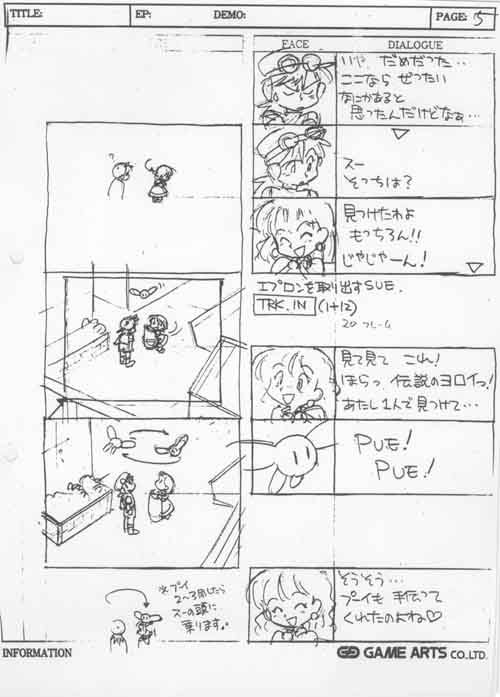 TITLE: EP: DEMO: PAGE: 5
FACE DIALOGUE
いや、だめだった‥
ここなら ぜったい
なにかあると
思ったんだけどなぁ…
スー
そっちは?
見つけたわよ
もっちろん!!
じゃじゃーん!
エプロンを取り出すSUE.
TRK.IN (1+12)
見て見て これ!
ほらっ 伝説のヨロイっ!
あたし1人で見つけて…
PUE!
PUE!
※プイ
2〜3周したら
スーの頭に
乗ります。
そうそう…
プイも 手伝って
くれたのよね♡
INFORMATION
GAME ARTS CO.,LTD.